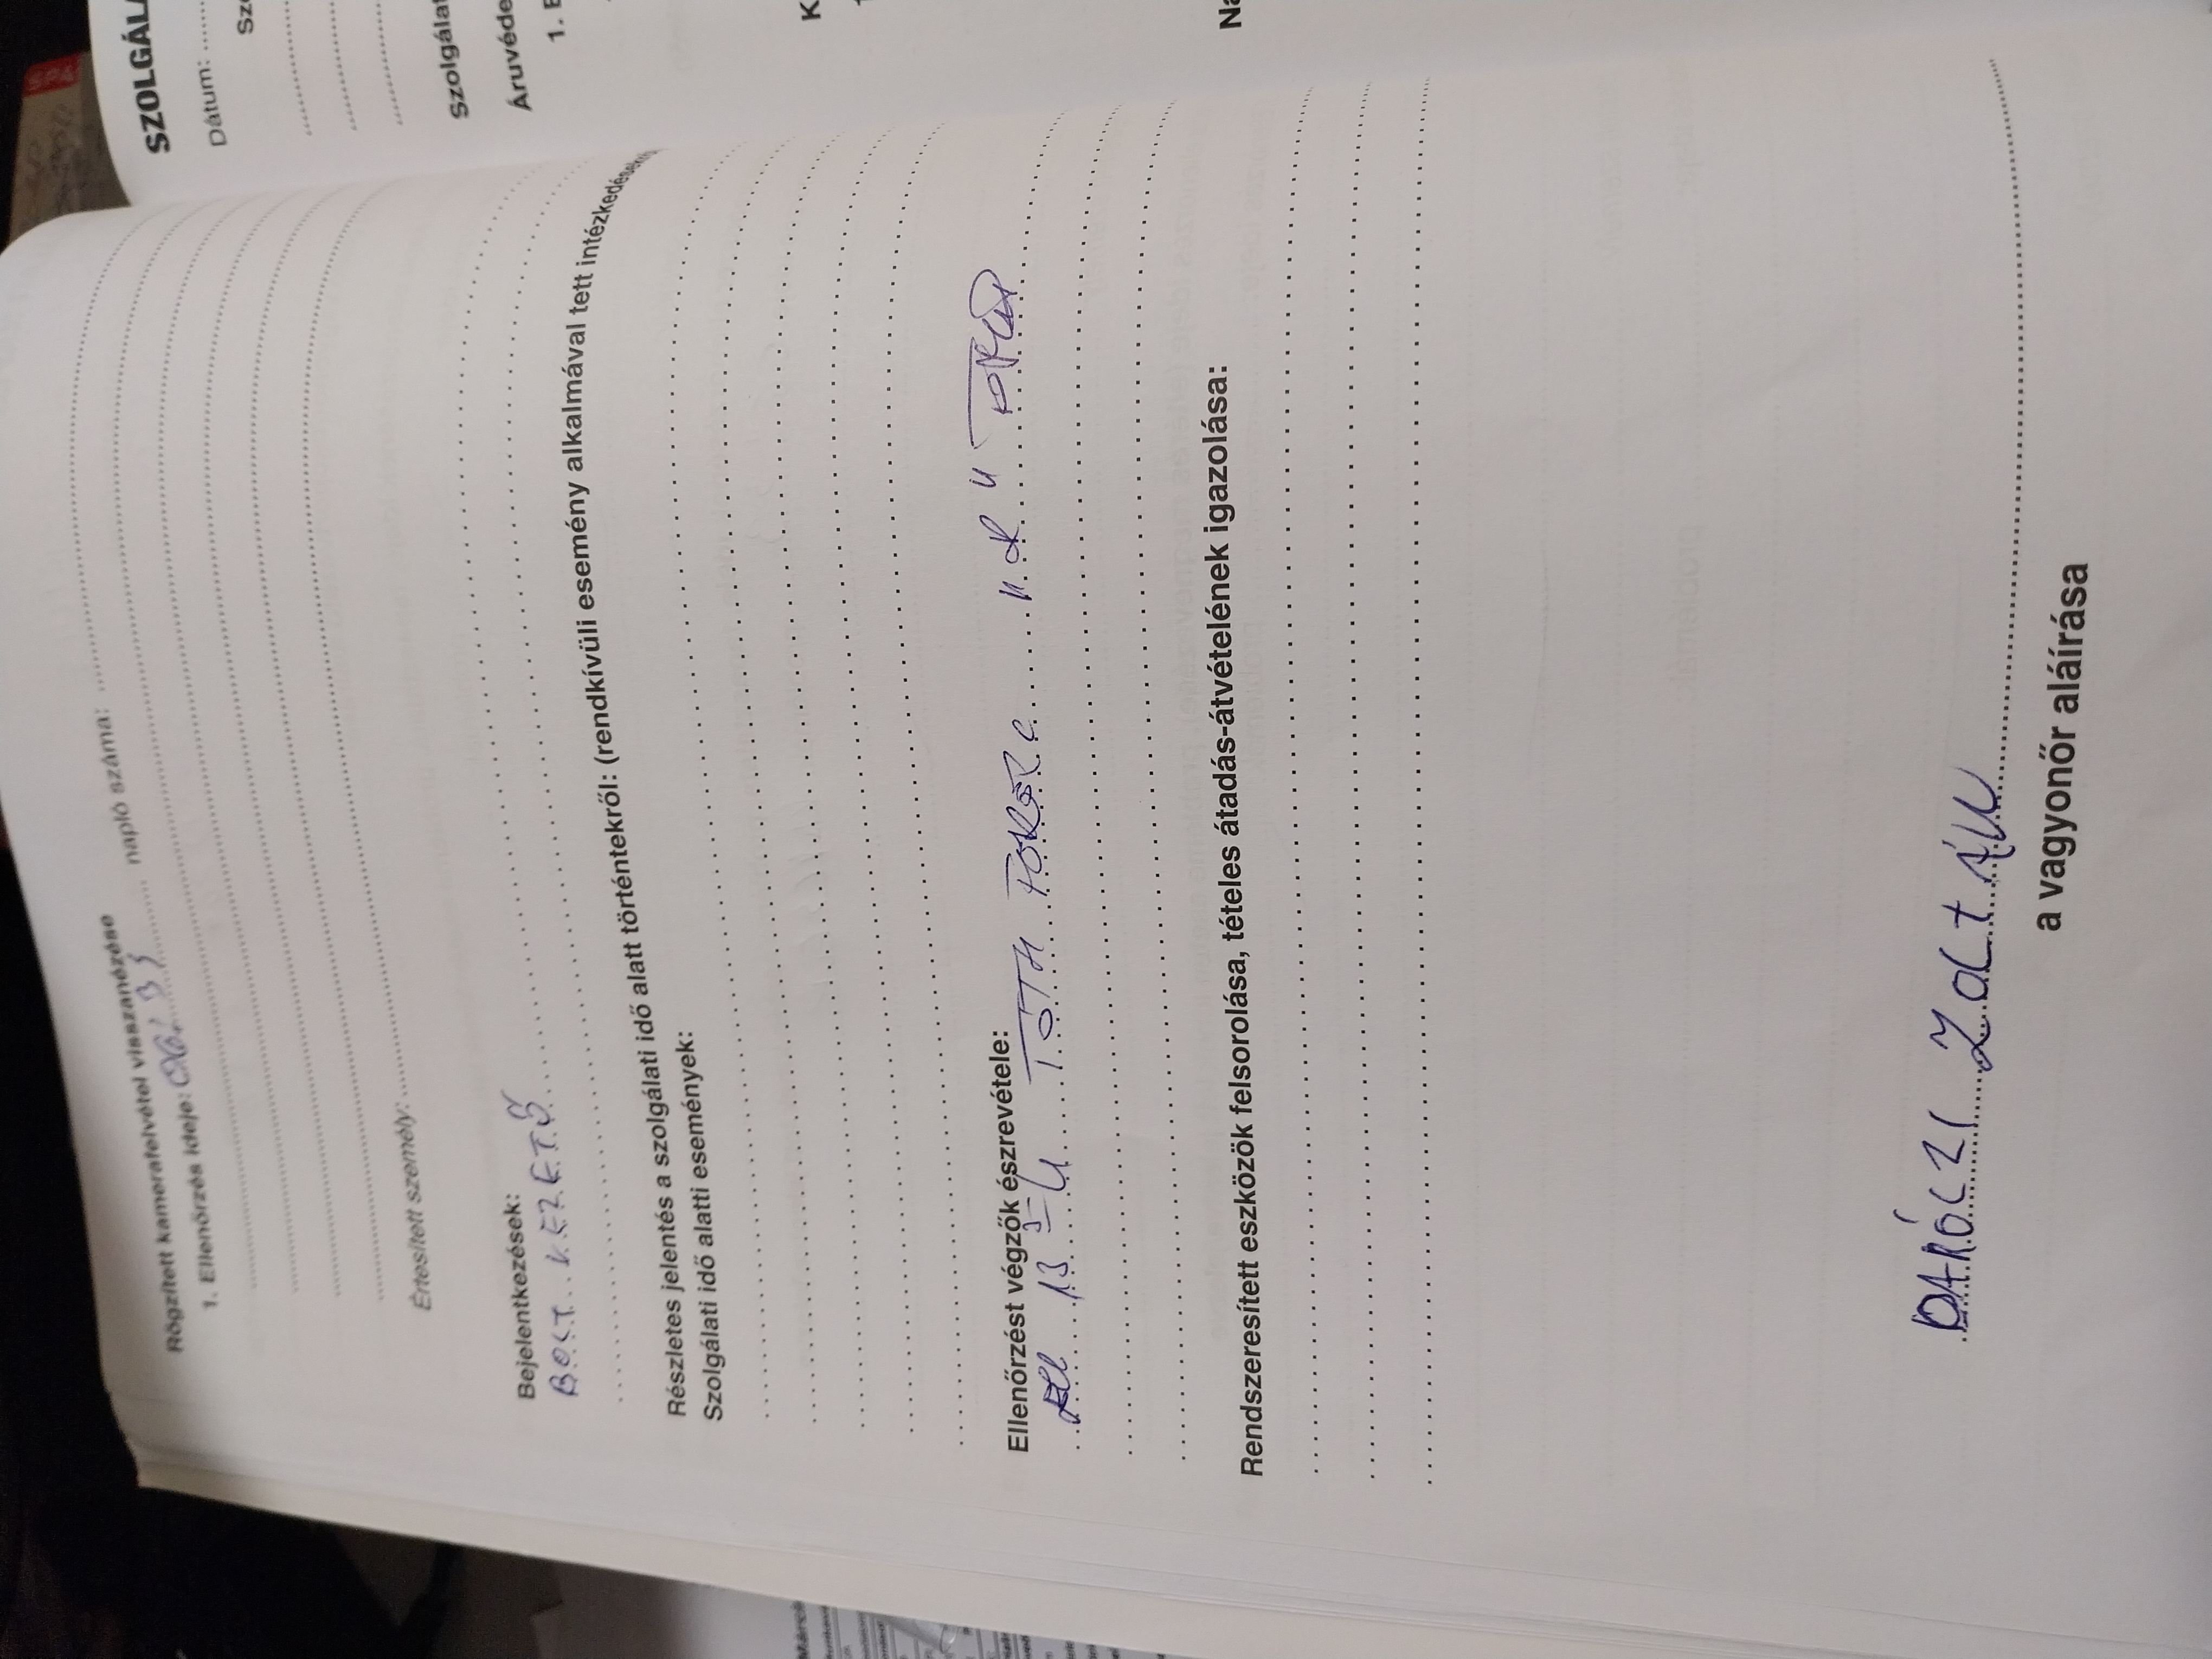 Rögzített kamerafelvétel visszanézése
1. Ellenőrzés ideje: napló száma:
Értesített személy:
Bejelentkezések:
BOLT VEZETŐ
Részletes jelentés a szolgálati idő alatt történtekről: (rendkívüli esemény alkalmával tett intézkedések)
Szolgálati idő alatti események:
Ellenőrzést végzők észrevétele:
13 TÓTH
Rendszeresített eszközök felsorolása, tételes átadás-átvételének igazolása:
DARÓCZI ZOLTÁN
a vagyonőr aláírása
SZOLGÁL
Dátum:
Sz
Szolgálat
Áruvéde
1. E
K
Na